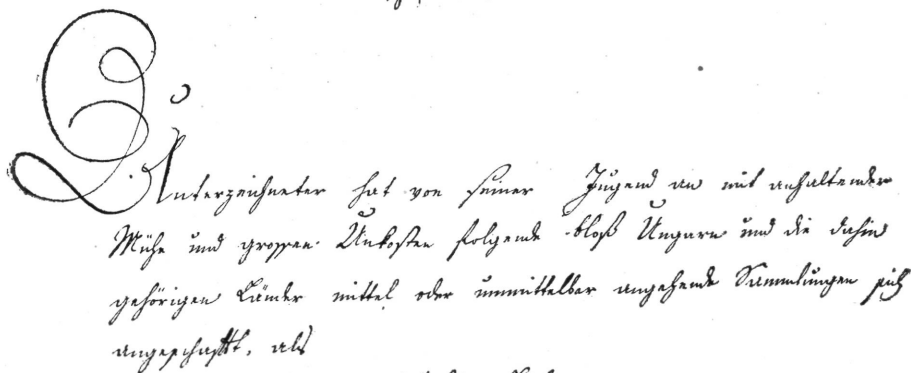 Unterzeichneter hat von seiner Jugend an mit anhaltender
Mühe und grossen Unkosten folgende bloß Ungarn und die dahin
gehörigen Länder mittel oder unmittelbar angehende Sammlungen sich
angeschafft, als